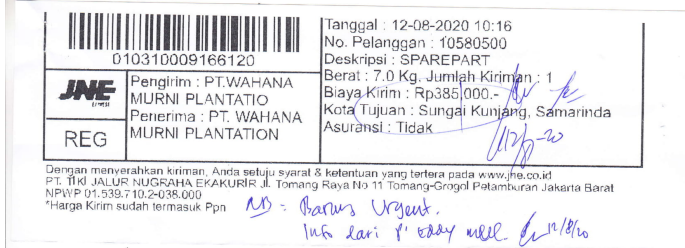 0103100009166120
JNE
EXPRESS
REG
Pengirim : PT.WAHANA
MURNI PLANTATIO
Penerima : PT. WAHANA
MURNI PLANTATION
Tanggal : 12-08-2020 10:16
No. Pelanggan : 10580500
Deskripsi : SPAREPART
Berat : 7.0 Kg, Jumlah Kiriman : 1
Biaya Kirim : Rp385,000.-
Kota Tujuan : Sungai Kunjang, Samarinda
Asuransi : Tidak
12/8-20
Dengan menyerahkan kiriman, Anda setuju syarat & ketentuan yang tertera pada www.jne.co.id
PT. TIKI JALUR NUGRAHA EKAKURIR Jl. Tomang Raya No 11 Tomang-Grogol Petamburan Jakarta Barat
NPWP 01.539.710.2-038.000
*Harga Kirim sudah termasuk Ppn
NB = Barang Urgent.
Info dari P' Eddy 12/8/20